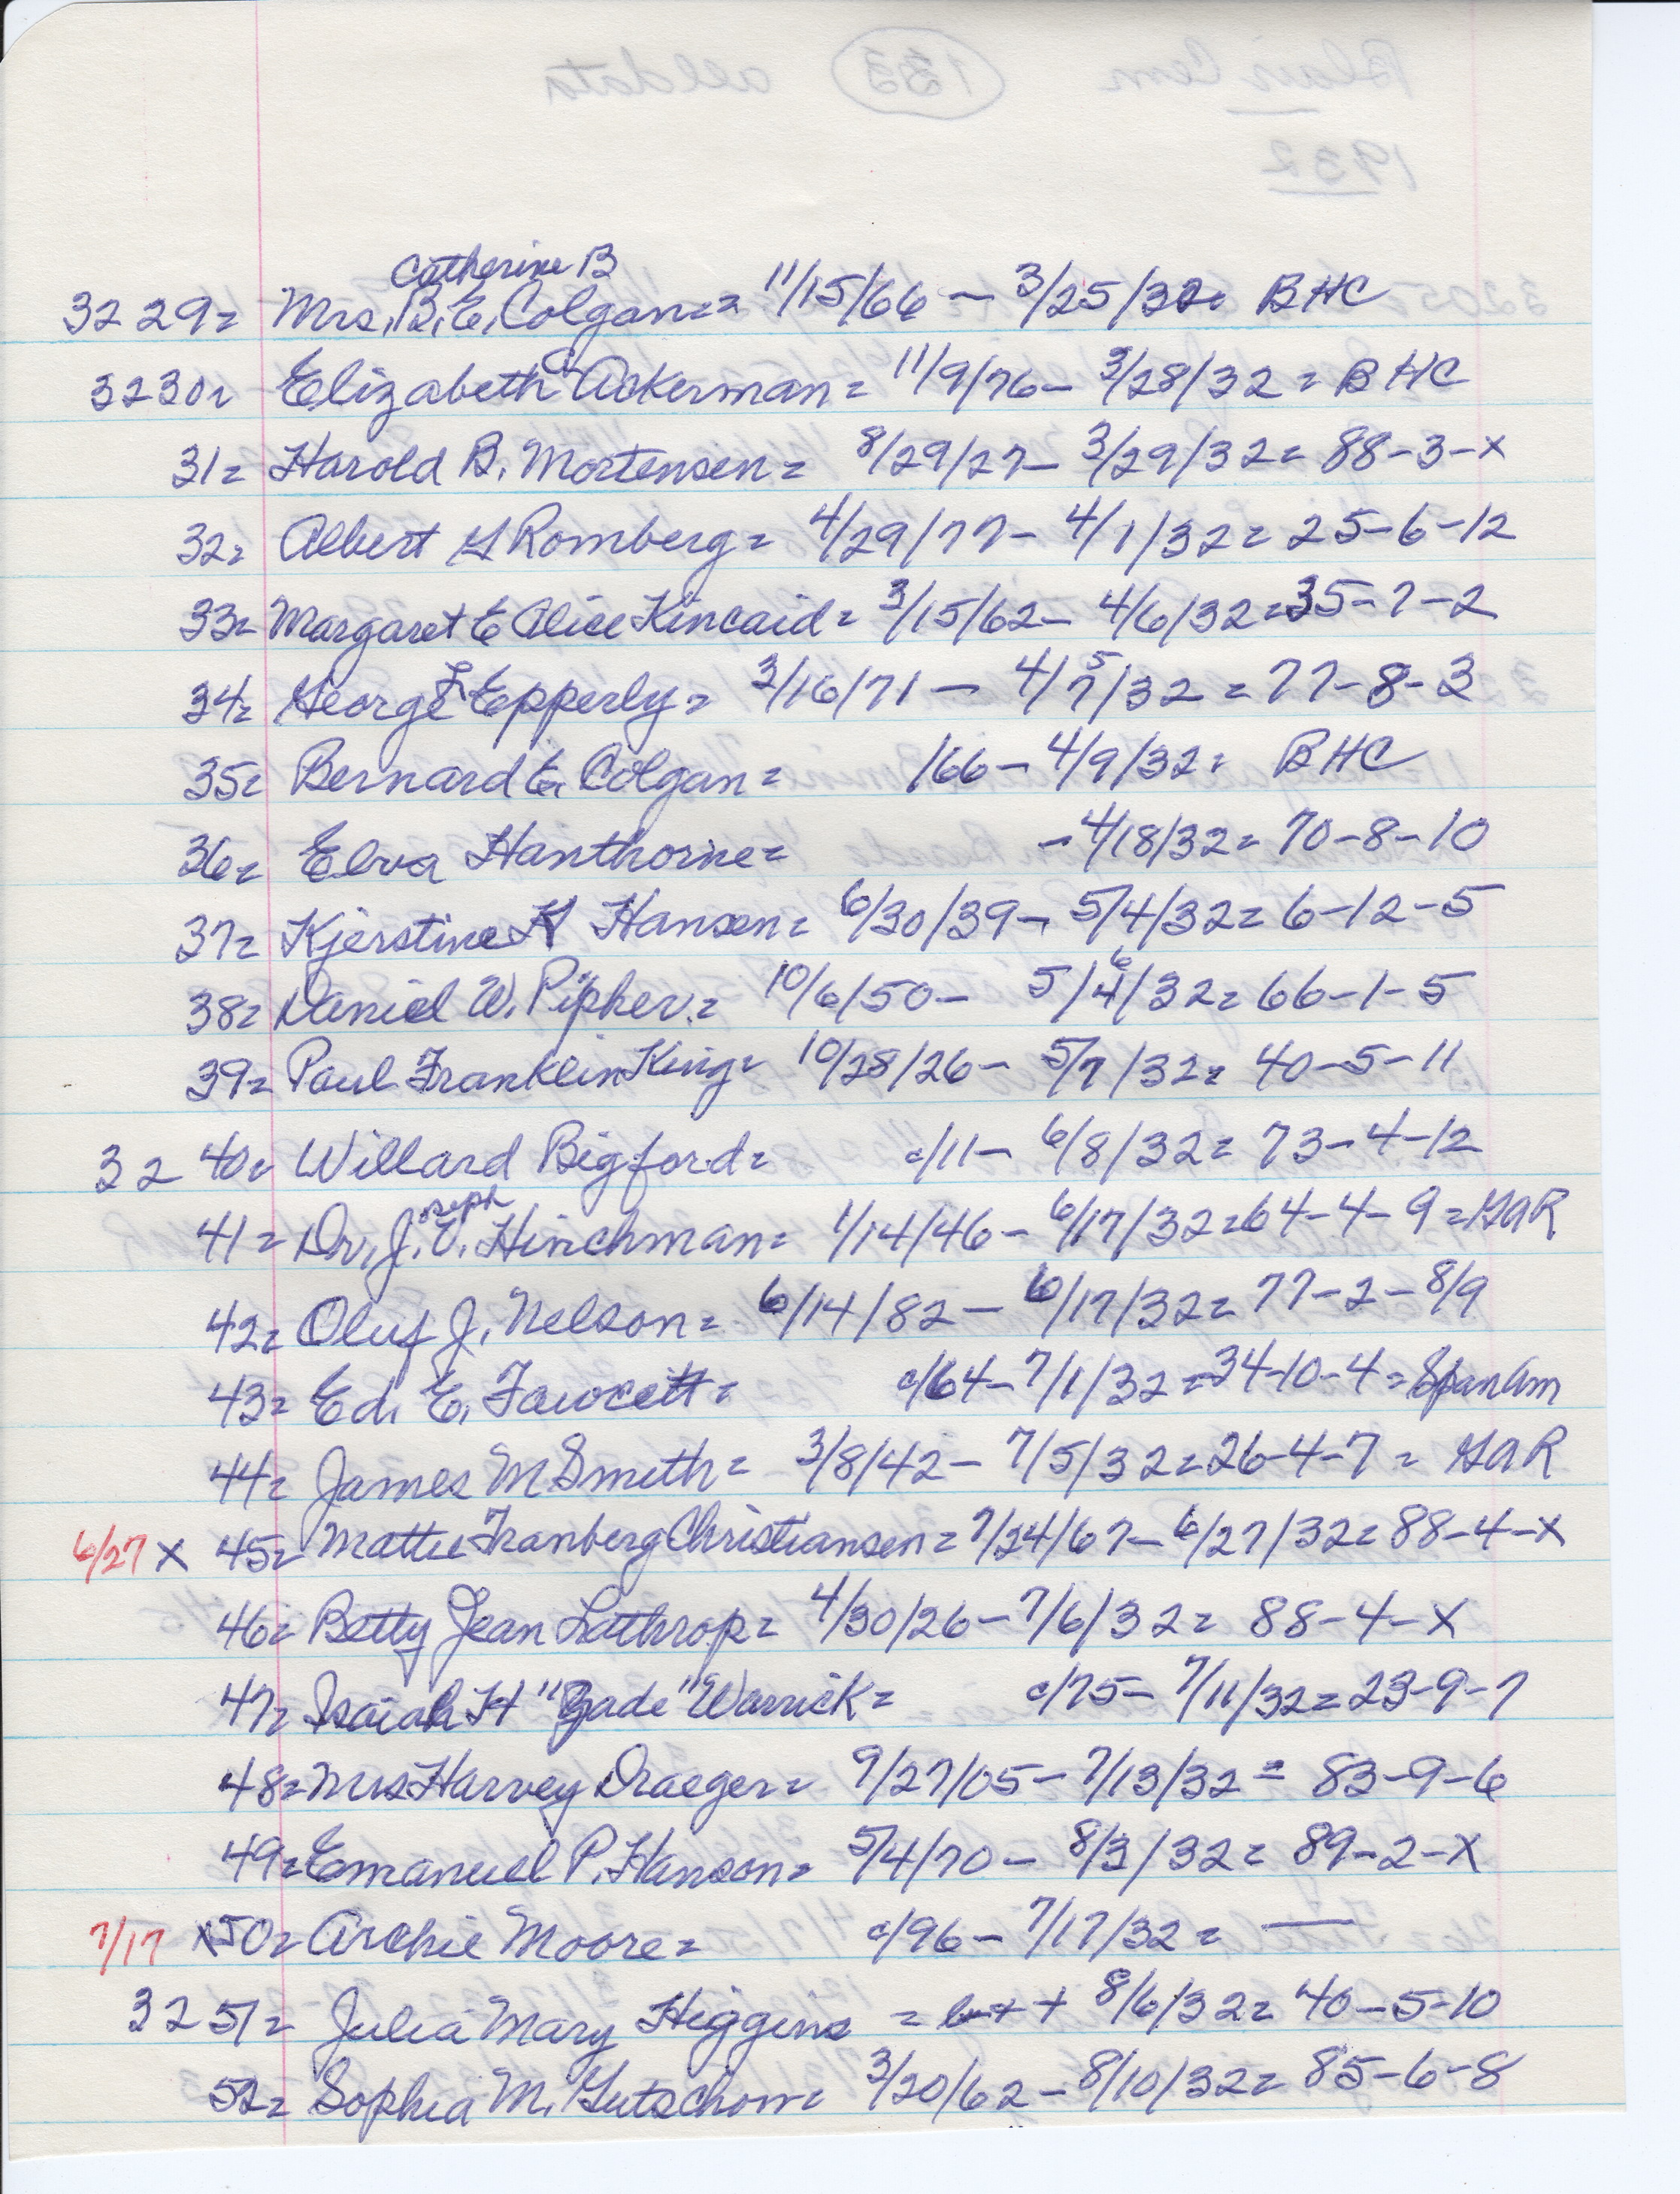 Catherine B
3229= Mrs. B. E. Colgan== 11/15/66 - 3/25/32= BHC
3230= Elizabeth C Ackerman= 11/9/76- 3/28/32= BHC
31= Harold B. Mortensen= 8/29/27- 3/29/32= 88-3-x
32= Albert G Romberg= 4/29/77- 4/1/32= 25-6-12
33= Margaret E Alice Kincaid= 3/15/62- 4/6/32=35-7-2
34= George F. Epperly= 3/16/71 - 4/7/32 = 77-8-3
5
35= Bernard E. Colgan= /66- 4/9/32= BHC
36= Elva Hanthorne= -4/18/32= 70-8-10
37= Kjerstine K Hansen= 6/30/39- 5/4/32= 6-12-5
38= Daniel W. Pipher.= 10/6/50- 5/4/32= 66-1-5
6
39= Paul Franklin King= 10/28/26- 5/7/32= 40-5-11
3240= Willard Bigford= c/11- 6/8/32= 73-4-12
oseph
41= Dr. J. V. Hinchman= 1/14/46- 6/17/32=64-4-9=GAR
42= Oluf J. Nelson= 6/14/82- 6/17/32= 77-2-8/9
43= Ed. E. Fawcett= c/64-7/1/32=34-10-4=SpanAm
44= James M Smith= 3/8/42- 7/5/32=26-4-7= GAR
6/27 x 45= Mattie Franberg Christiansen= 7/24/67- 6/27/32= 88-4-x
46= Betty Jean Lathrop= 4/30/26-7/6/32= 88-4-X
47= Isaiah H "Zade" Warrick= c/75- 7/11/32=23-9-7
48= Mrs Harvey Draeger= 9/27/05-7/13/32= 83-9-6
49= Emanuel P. Hanson= 5/4/70- 8/3/32= 89-2-X
7/17 x50= Archie Moore= c/96- 7/17/32= —
3251= Julia Mary Higgins = b++ 8/6/32= 40-5-10
52= Sophia M. Gutschow= 3/20/62-8/10/32= 85-6-8